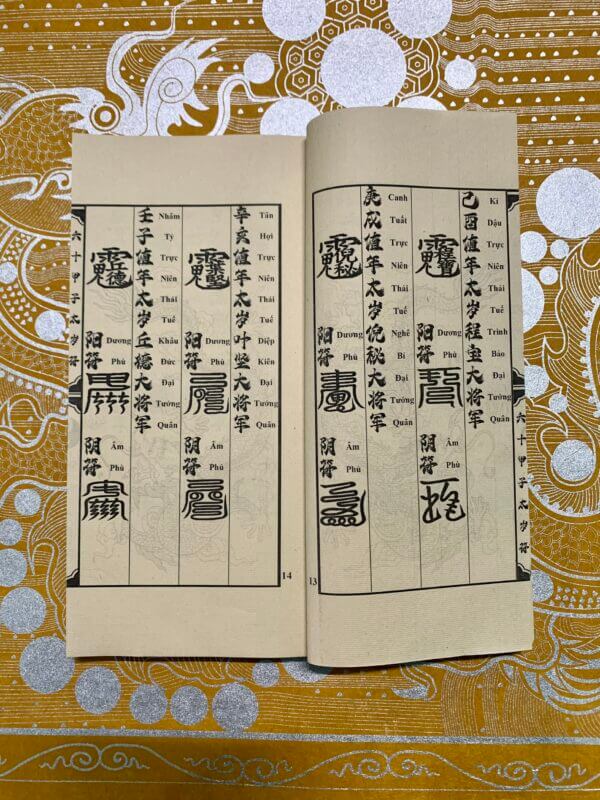 六十甲子太岁符
己酉值年太岁程宝大将军
Kỉ Dậu Trực Niên Thái Tuế Trình Bảo Đại Tướng Quân
阳符
Dương Phù
阴符
Âm Phù
庚戌值年太岁倪秘大将军
Canh Tuất Trực Niên Thái Tuế Nghê Bí Đại Tướng Quân
阳符
Dương Phù
阴符
Âm Phù
13
辛亥值年太岁叶坚大将军
Tân Hợi Trực Niên Thái Tuế Diệp Kiên Đại Tướng Quân
阳符
Dương Phù
阴符
Âm Phù
壬子值年太岁丘德大将军
Nhâm Tý Trực Niên Thái Tuế Khâu Đức Đại Tướng Quân
阳符
Dương Phù
阴符
Âm Phù
六十甲子太岁符
14